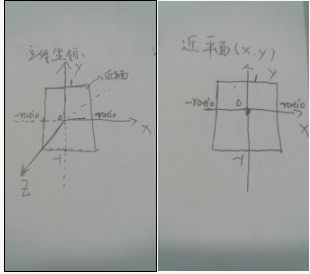 立体坐标
Y
近平面
1
-ratio
0
ratio
X
-1
Z
近平面(x.y)
Y
1
-ratio
0
ratio
X
-1